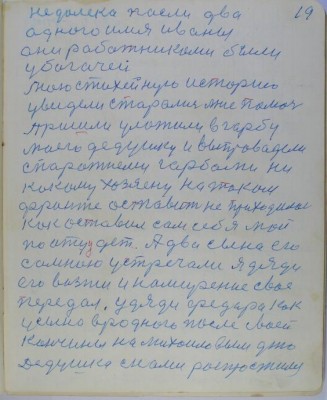 19
недолека посли два
одного имя иваны
они работниками были
у богачей
мою стихейную историю
увидели старался мне помоч
пришли уложили в гарбу
моего дедушку и выпроводили
старой гарбой ни
какому хозяену на таком
фронте оставит не приходилос
как оставил сам себя мой
А два сына его
самною устречали я дяди
его возти и намирение свое
передал, у дяди федара как
у сына в родного после своей
кончины на михаила был дто
Дедушка снами роспростилис